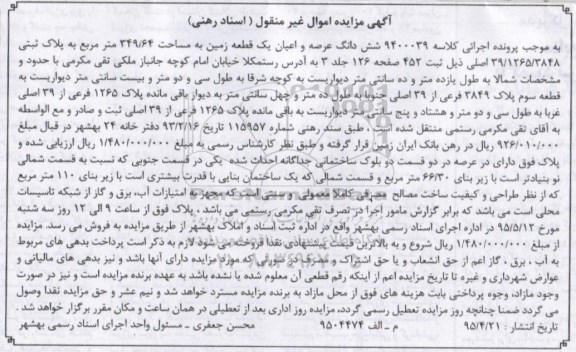 آگهی مزایده اموال غیر منقول ( اسناد رهنی)
به موجب پرونده اجرائی کلاسه ۹۴۰۰۰۳۹ شش دانگ عرصه و اعیان یک قطعه زمین به مساحت ۳۴۹/۶۴ متر مربع به پلاک ثبتی
۳۹/۱۲۶۵/۳۸۴۸ اصلی ذیل ثبت ۴۵۲ صفحه ۱۲۶ جلد ۳ به آدرس رستمکلا خیابان امام کوچه جانباز ملکی تقی مکرمی با حدود و
مشخصات شمالا به طول یازده متر و ده سانتی متر دیواریست به کوچه شرقا به طول سی و دو متر و بیست سانتی متر دیواریست به
قطعه سوم پلاک ۳۸۴۹ فرعی از ۳۹ اصلی جنوبا به طول ده متر و چهل سانتی متر به دیوار باقی مانده پلاک ۱۲۶۵ فرعی از ۳۹ اصلی
غربا به طول سی و دو متر و هشتاد و پنج سانتی متر دیواریست به باقی مانده پلاک ۱۲۶۵ فرعی از ۳۹ اصلی ثبت و صادر و مع الواسطه
به آقای تقی مکرمی رستمی منتقل شده است . طبق سند رهنی شماره ۱۱۵۹۵۷ تاریخ ۹۳/۲/۱۶ دفتر خانه ۲۴ بهشهر در قبال مبلغ
۹۲۶/۰۱۰/۰۰۰ ریال در رهن بانک ایران زمین قرار گرفته و طبق نظر کارشناس رسمی به مبلغ ۱/۴۸۰/۰۰۰/۰۰۰ ریال ارزیابی شده و
پلاک فوق دارای در عرصه در دو قسمت دو بلوک ساختمانی جداگانه احداث شده یکی در قسمت جنوبی که نسبت به قسمت شمالی
نو بنیادتر است با زیر بنای ۶۶/۳۰ متر مربع و قسمت شمالی که یک ساختمان بنایی با قدرت بیشتری است با زیر بنای ۱۱۰ متر مربع
که از نظر طراحی و کیفیت ساخت مصالح مصرفی کاملا معمولی و سنتی است که مجهز به امتیازات آب، برق و گاز از شبکه تاسیسات
محلی است می باشد که برابر گزارش مامور اجرا در تصرف تقی مکرمی رستمی می باشد ، پلاک فوق از ساعت ۹ الی ۱۲ روز سه شنبه
مورخ ۹۵/۵/۱۲ در اداره اجرای اسناد رسمی بهشهر واقع در اداره ثبت اسناد و املاک بهشهر از طریق مزایده به فروش می رسد. مزایده
از مبلغ ۱/۴۸۰/۰۰۰/۰۰۰ ریال شروع و به بالاترین قیمت پیشنهادی نقدا فروخته می شود لازم به ذکر است پرداخت بدهی های مربوط
به آب ، برق ، گاز اعم از حق انشعاب و یا حق اشتراک و مصرف در صورتی که مورد مزایده دارای آنها باشد و نیز بدهی های مالیاتی و
عوارض شهرداری و غیره تا تاریخ مزایده اعم از اینکه رقم قطعی آن معلوم شده یا نشده باشد به عهده برنده مزایده است و نیز در صورت
وجود مازاد، وجوه پرداختی بابت هزینه های فوق از محل مازاد به برنده مزایده مسترد خواهد شد و نیم عشر و حق مزایده نقدا وصول
می گردد ضمنا چنانچه روز مزایده تعطیل رسمی گردد، مزایده روز اداری بعد از تعطیلی در همان ساعت و مکان مقرر برگزار خواهد شد .
تاریخ انتشار : ۹۵/۴/۲۱ م - الف ۹۵۰۴۴۷۴ محسن جعفری - مسئول واحد اجرای اسناد رسمی بهشهر